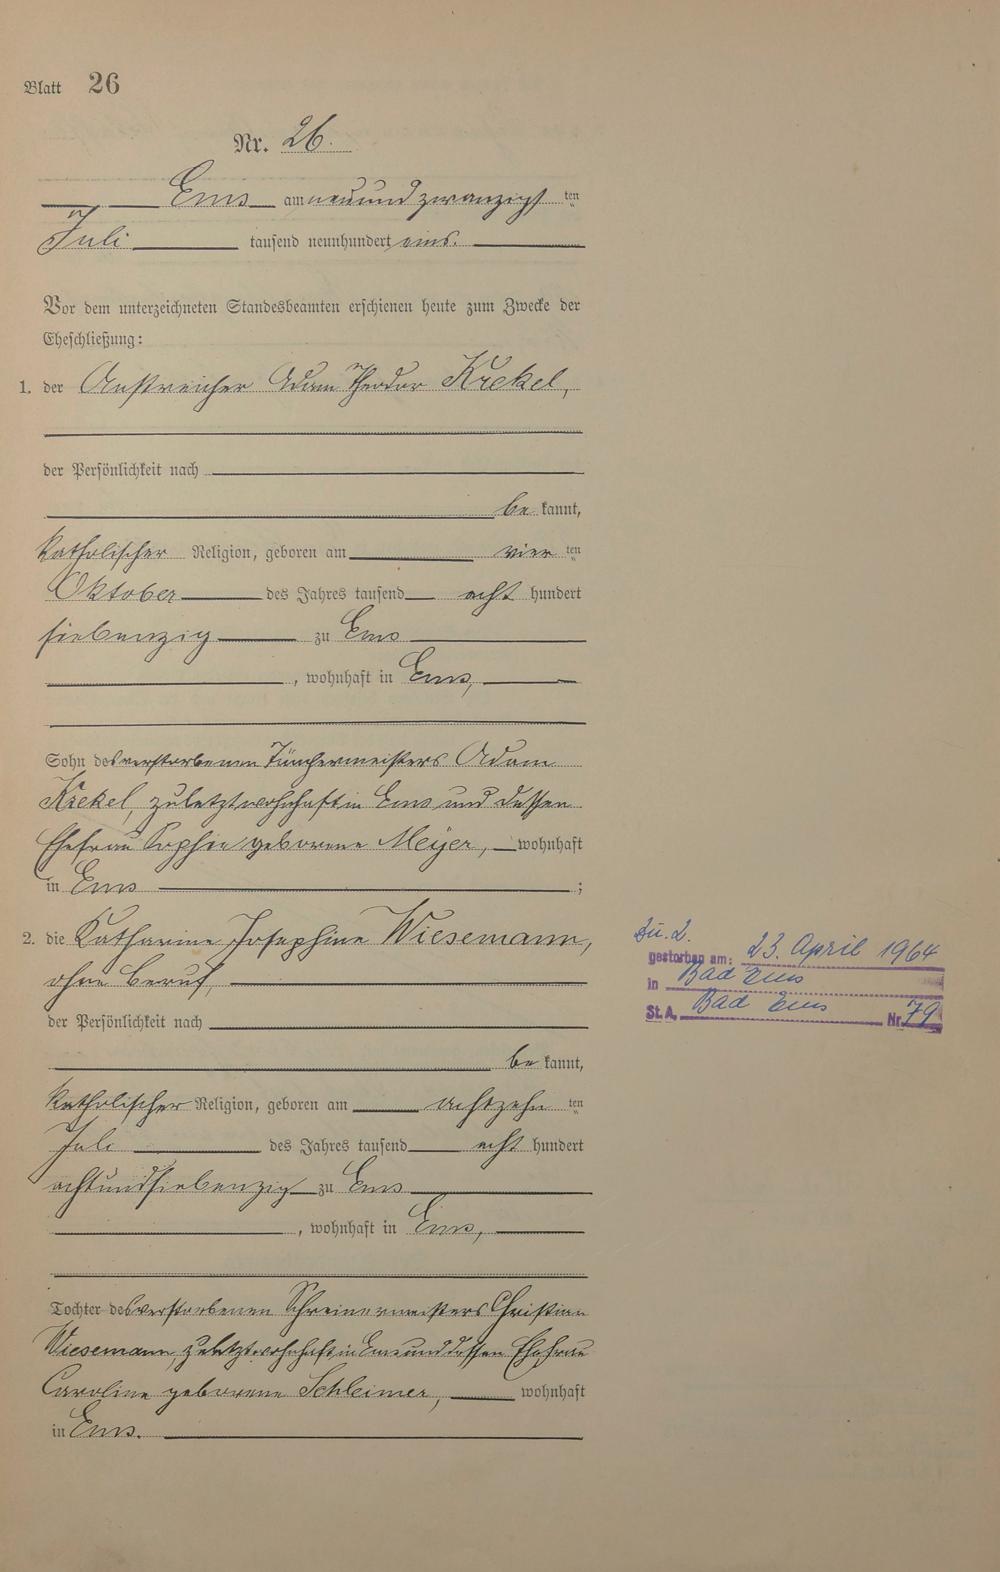 Blatt 26
Nr. 26.
Ems am neunundzwanzigsten
Juli tausend neunhundert eins.
Vor dem unterzeichneten Standesbeamten erschienen heute zum Zwecke der
Eheschließung:
1. der Anstreicher Adam Theodor Krekel,
der Persönlichkeit nach
bekannt,
katholischer Religion, geboren am vierten
Oktober des Jahres tausend acht hundert
siebenzig zu Ems
, wohnhaft in Ems,
Sohn des verstorbenen Tünchermeisters Adam
Krekel, zuletzt wohnhaft in Ems und dessen
Ehefrau Sophie geborene Meijer, wohnhaft
in Ems ;
2. die Katharine Josephine Wiesemann,
ohne Beruf,
der Persönlichkeit nach
bekannt,
katholischer Religion, geboren am achtzehnten
Juli des Jahres tausend acht hundert
achtundsiebenzig zu Ems
, wohnhaft in Ems,
Tochter des verstorbenen Schreinermeisters Christian
Wiesemann, zuletzt wohnhaft in Ems und dessen Ehefrau
Caroline geborene Schleimer, wohnhaft
in Ems.
Zu. 2.
gestorben am: 23. April 1964
in Bad Ems
St. A. Bad Ems Nr. 79